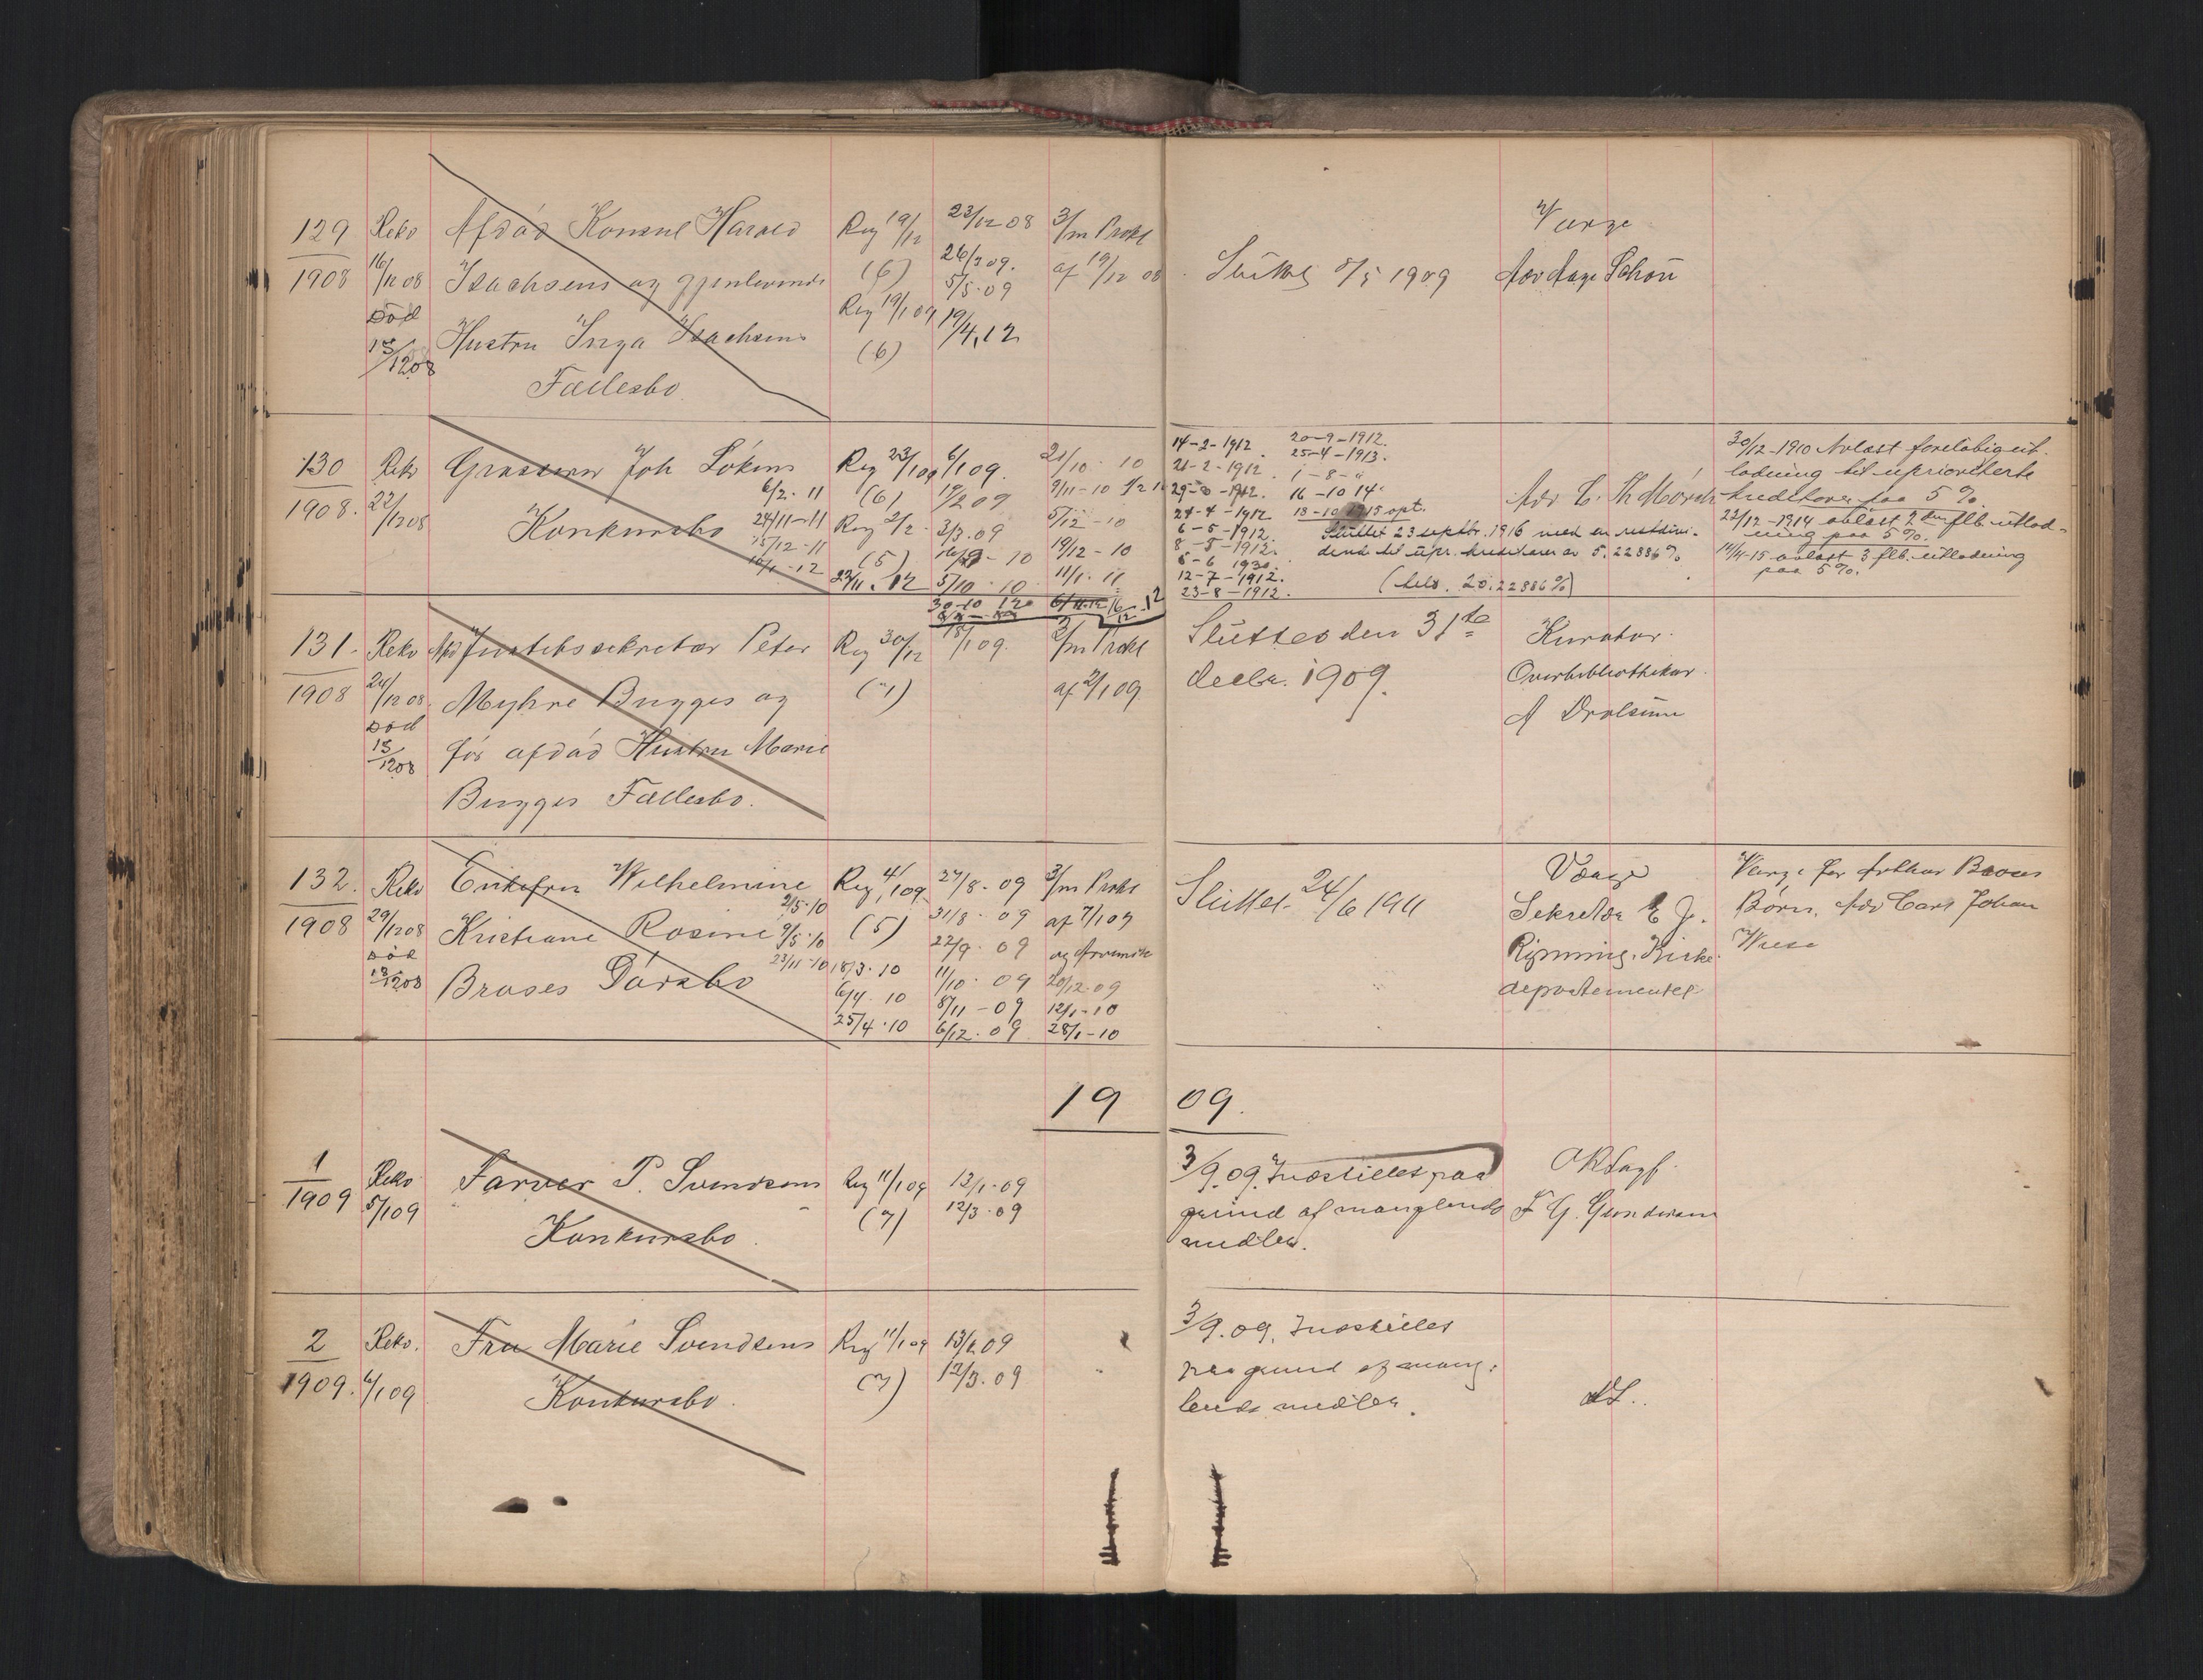 129 Reko Afdød Konsul Harald Reg 19/12 23/12 08 3/m Prokl Værge
1908 16/12 08 Isachsens og gjenlevende (6) 26/2 09. af 19/12 08 Sluttet 5/5 1909 Adv Aage Schou
Død 5/5.09
13/12 08 Hustru Inga Isachsens Reg 19/1 09 19/4.12
(6)
Fællesbo
130 Reko Grosserer Joh Lökens Reg 23/1 09 6/1 09. 21/10 10
1908. 22/12 08 6/2.11 (6) 19/2 09 9/11-10
Konkursbo 24/11-11 Reg 2/2. 3/3.09 5/12-10
15/12-11 (5) 10 19/12-10
10/1-12 22/11.12 5/10.10 11/1.11
30-10 12
14-2-1912. 20-9-1912.
21-2-1912. 25-4-1913.
1-8-"
16-10 14
24-4-1912 13-10 1915 opt.
6-5-1912.
8-5-1912.
6-6 1930.
12-7-1912.
23-8-1912.
Sluttet 23 septbr. 1916 med en restdivi-
dende til upr. kreditorer av 5.22886%
(tils. 20.22886%)
Adv C. Th Mörch
30/12-1910 Avlæst foreløbig ut-
lodning til uprioriterte
kreditorer paa 5%
22/12-1914 avlæst 2den flb. utlod-
ning paa 5%.
14/4-15 avlæst 3 flb. utlodning
paa 5%.
131. Reko Afd Justitssekretær Peter Reg 30/12 1/09. 2/m Prokl Sluttes den 31te Kurator.
1908 24/12 08 Myhre Bugges og (7) af 2/1 09 decbr. 1909. Overbibliothekar
Død A Drolsum
13/12 08 før afdød Hustru Marie
Bugges Fællesbo.
132. Reko Enkefru Wilhelmine Reg 4/1 09 27/8.09 3/m Prokl Sluttet 24/6 1911 Værge Værge for Arthur Brøses
1908 29/12 08 Kristiane Rosine 2/5.10 (5) 31/8.09 af 7/1 09 Sekretær E J. Børn. Adv Carl Johan
Død 9/5.10 22/9.09 Rynning. Kirke- Wiese
13/12 08 Brøses Dørsbo 23/11-10 18/3.10 11/10.09 20/12.09 departementet
6/4.10 8/11-09 12/1-10
25/4.10 6/12.09 28/1-10
1909.
1 Reko Farver P. Svendsens Reg 11/1 09 13/1.09 3/9.09. Indstilles paa ORSagf.
1909 5/1 09 Konkursbo. (7) 12/3.09 grund af manglende F G. Gundersen
midler.
2 Reko. Fru Marie Svendsens Reg 11/1 09 13/1 09 3/9.09. Indstilles
1909. 6/1 09 Konkursbo. (7) 12/3.09 paa grund af mang-
lende midler.